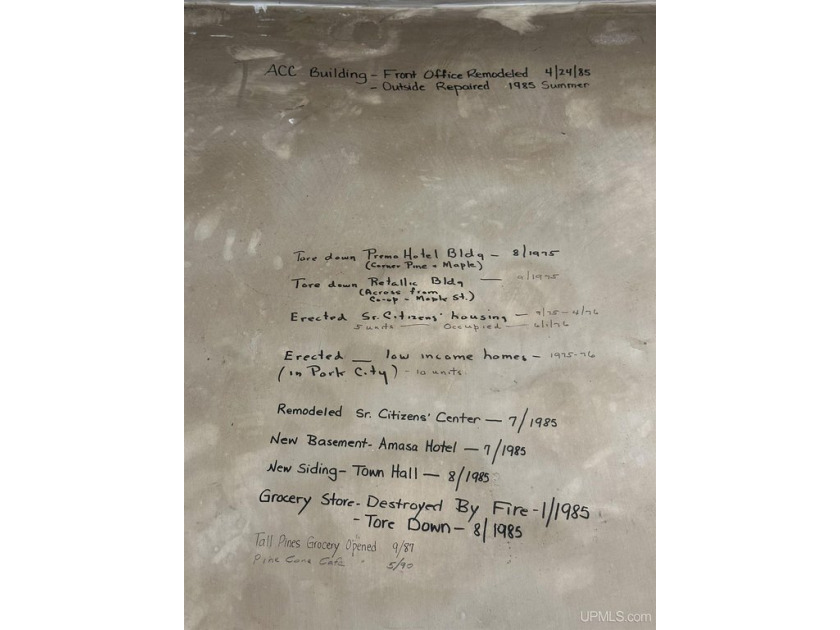 ACC Building - Front Office Remodeled 4/24/85
- Outside Repaired 1985 Summer
Tore down Prema Hotel Bldg - 8/1975
(Corner Pine + Maple)
Tore down Retallic Bldg — 9/1975
(Across from
Co-op - Maple St.)
Erected Sr. Citizens' housing - 9/75 - 4/76
5 units — Occupied — 6/1/76
Erected __ low income homes - 1975-76
(in Park City) - 10 units
Remodeled Sr. Citizens' Center — 7/1985
New Basement - Amasa Hotel — 7/1985
New Siding - Town Hall — 8/1985
Grocery Store - Destroyed By Fire - 1/1985
- Tore Down - 8/1985
Tall Pines Grocery Opened 9/87
Pine Cone Café " 5/90
UPMLS.com